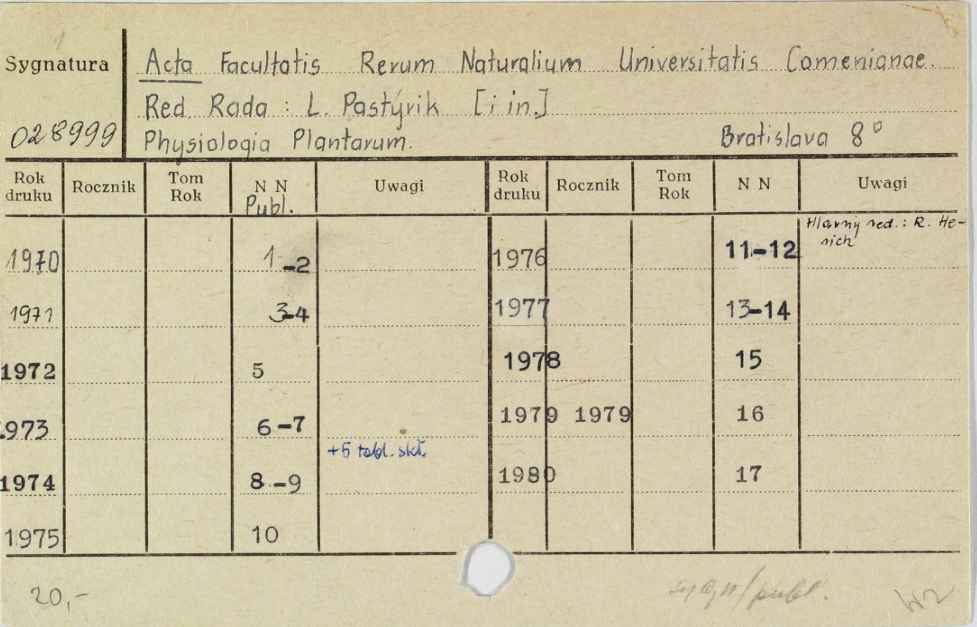 Sygnatura
028999
Acta Facultatis Rerum Naturalium Universitatis Comenianae.
Red Rada : L. Pastýrik [i in.]
Physiologia Plantarum. Bratislava 8°
Rok druku Rocznik Tom Rok N N Publ. Uwagi Rok druku Rocznik Tom Rok N N Uwagi
1970 1-2 1976 11-12 Hlavný red.: R. He-
rich
1971 3-4 1977 13-14
1972 5 1978 15
1973 6-7 1979 1979 16
+5 tabl. skł.
1974 8-9 1980 17
1975 10
20,-
/publ.
W2